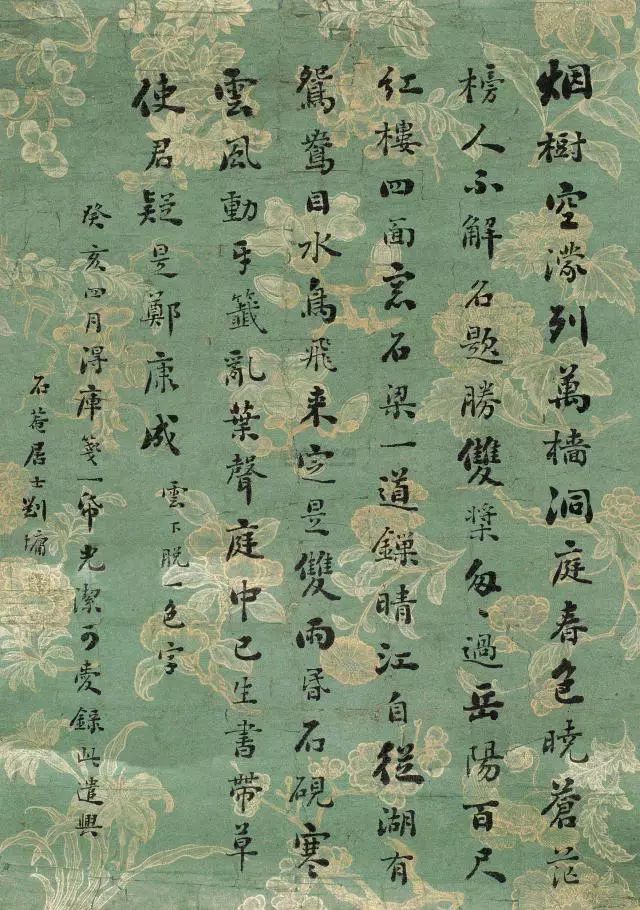 烟樹空濛列萬檣洞庭春色曉蒼茫
榜人不解名題勝雙槳匆、過岳陽百尺
红樓四面窓石梁一道鏁晴江自從湖有
鴛鴦目水鳥飛来定是雙雨昏石硯寒
雲風動牙籤亂葉聲庭中已生書帶草
使君疑是鄭康成 雲下脱一色字
癸亥四月得庫箋一帋光潔可愛録此遣興
石菴居士劉墉